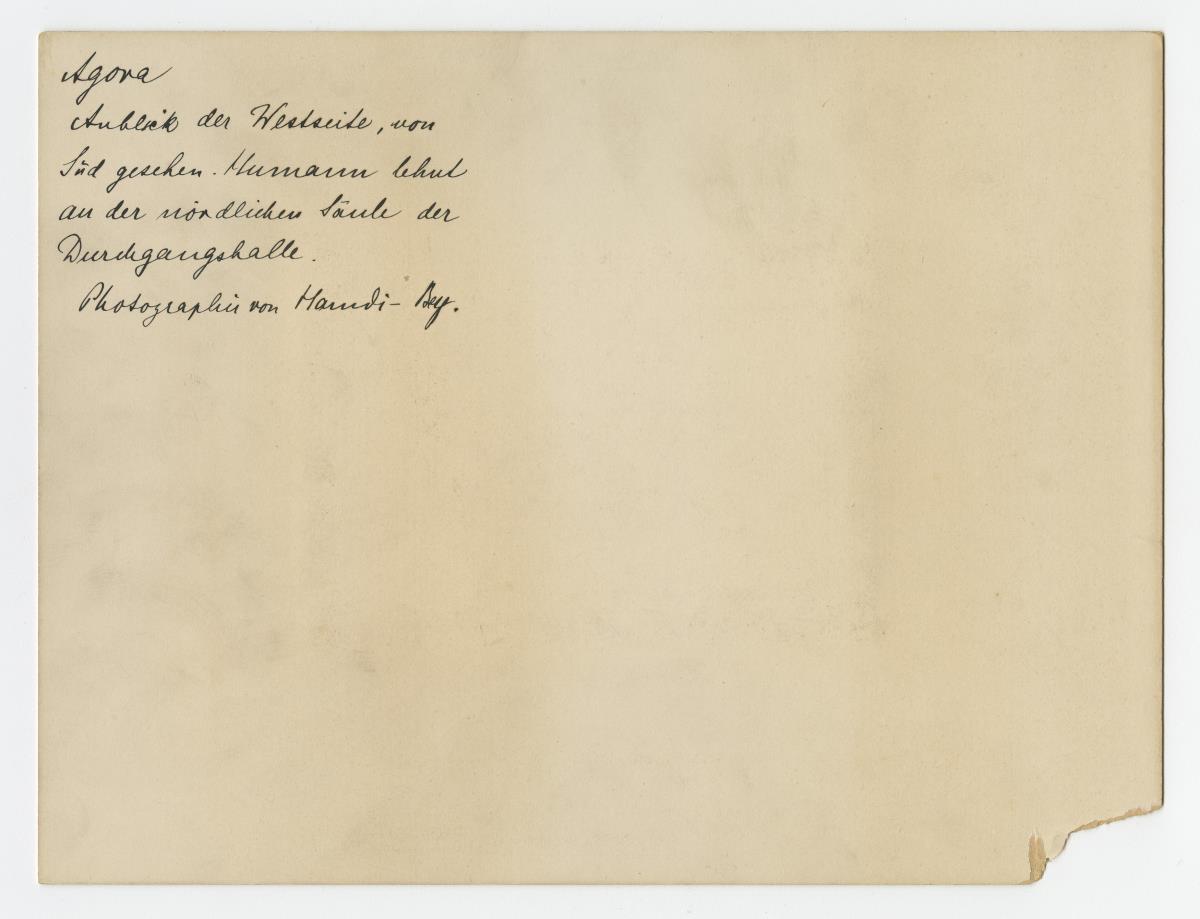 Agora
Anblick der Westseite, von
Süd gesehen. Humann lehnt
an der nördlichen Säule der
Durchgangshalle.
Photographie von Hamdi-Bey.